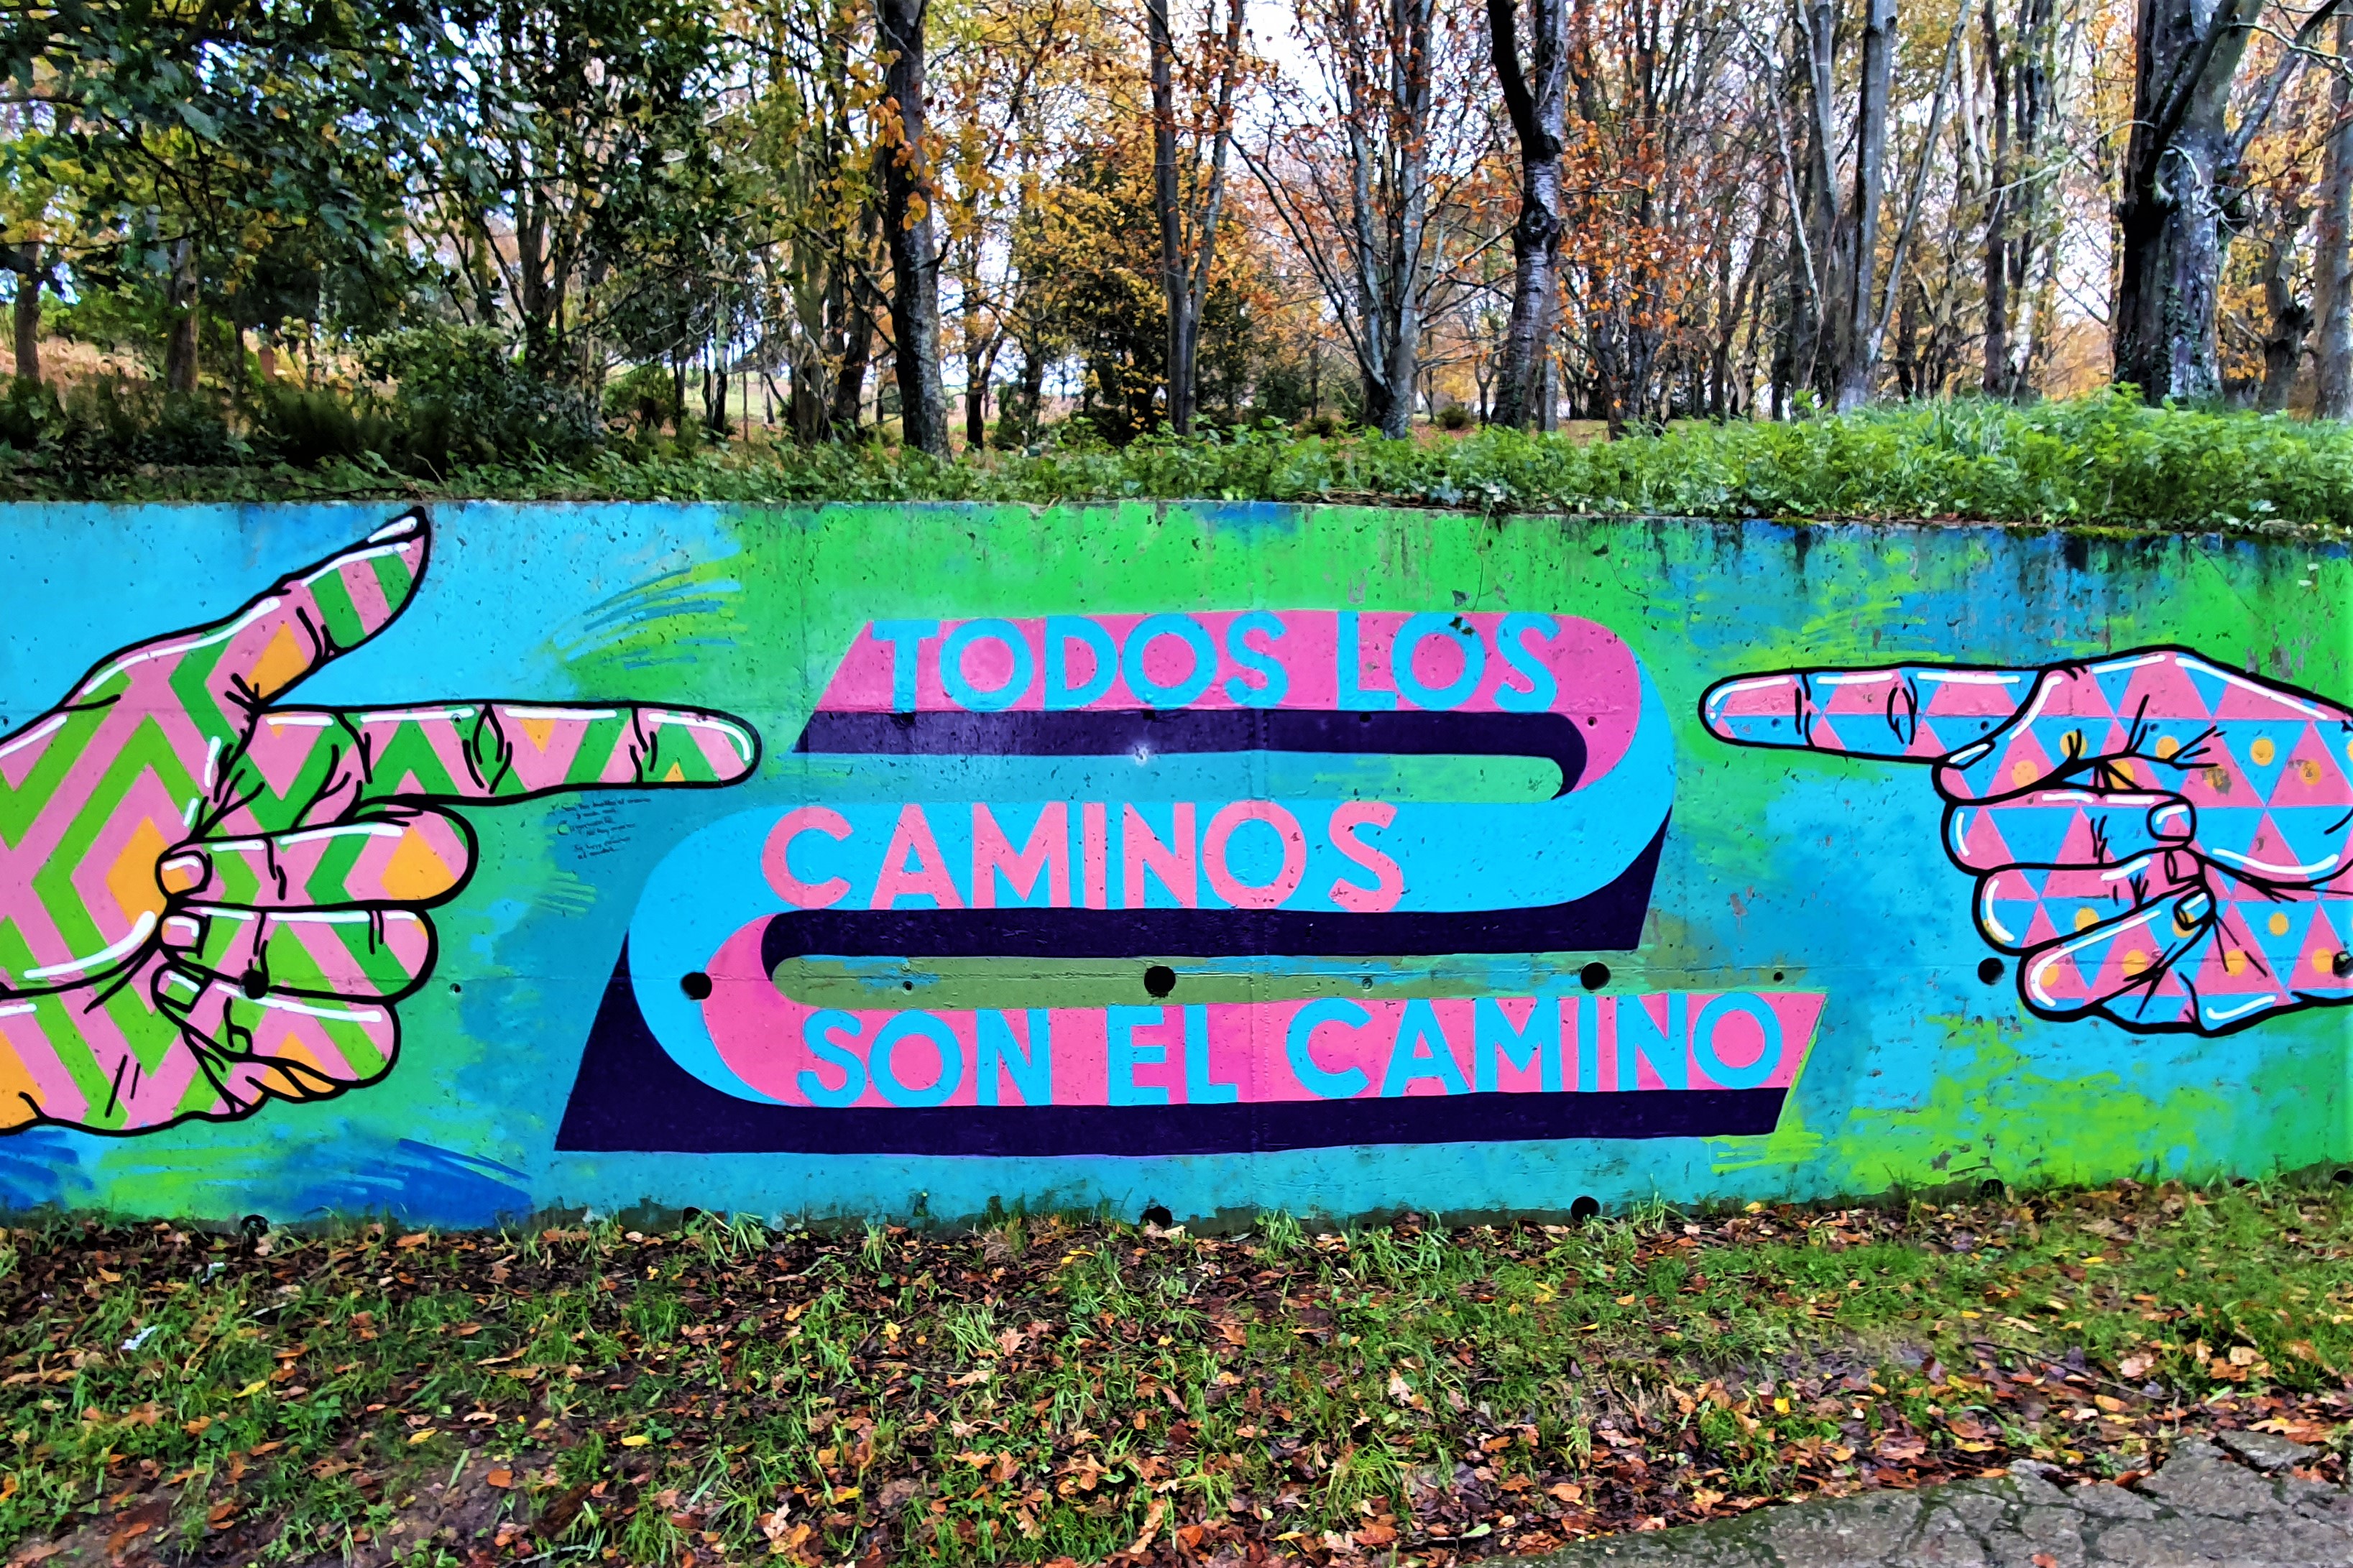 TODOS LOS
CAMINOS
SON EL CAMINO